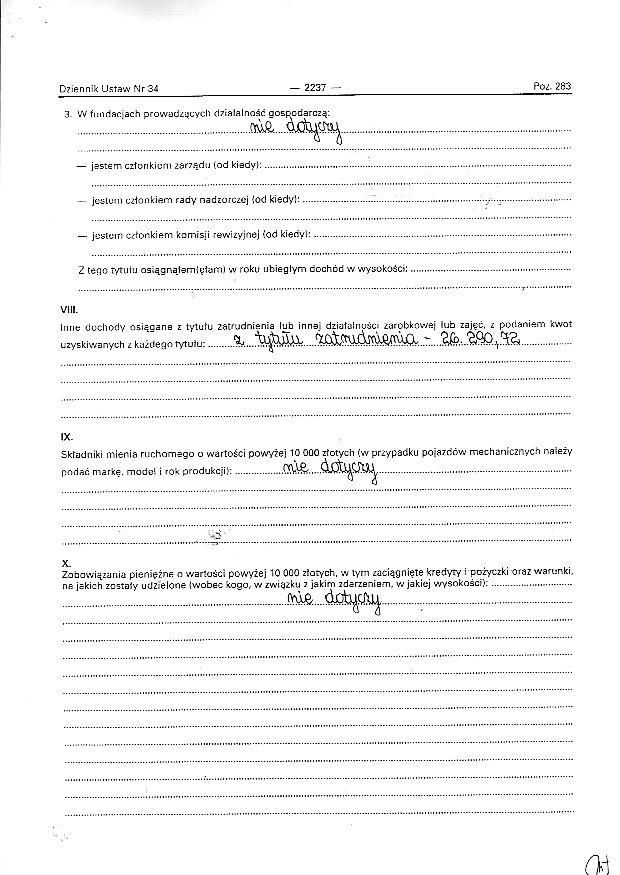 Dziennik Ustaw Nr 34 — 2237 — Poz. 283
3. W fundacjach prowadzących działalność gospodarczą:
nie dotyczy
— jestem członkiem zarządu (od kiedy):
— jestem członkiem rady nadzorczej (od kiedy):
— jestem członkiem komisji rewizyjnej (od kiedy):
Z tego tytułu osiągnąłem(ęłam) w roku ubiegłym dochód w wysokości:
VIII.
Inne dochody osiągane z tytułu zatrudnienia lub innej działalności zarobkowej lub zajęć, z podaniem kwot
uzyskiwanych z każdego tytułu: z tytułu zatrudnienia - 26.290,72
IX.
Składniki mienia ruchomego o wartości powyżej 10 000 złotych (w przypadku pojazdów mechanicznych należy
podać markę, model i rok produkcji): nie dotyczy
X.
Zobowiązania pieniężne o wartości powyżej 10 000 złotych, w tym zaciągnięte kredyty i pożyczki oraz warunki,
na jakich zostały udzielone (wobec kogo, w związku z jakim zdarzeniem, w jakiej wysokości):
nie dotyczy